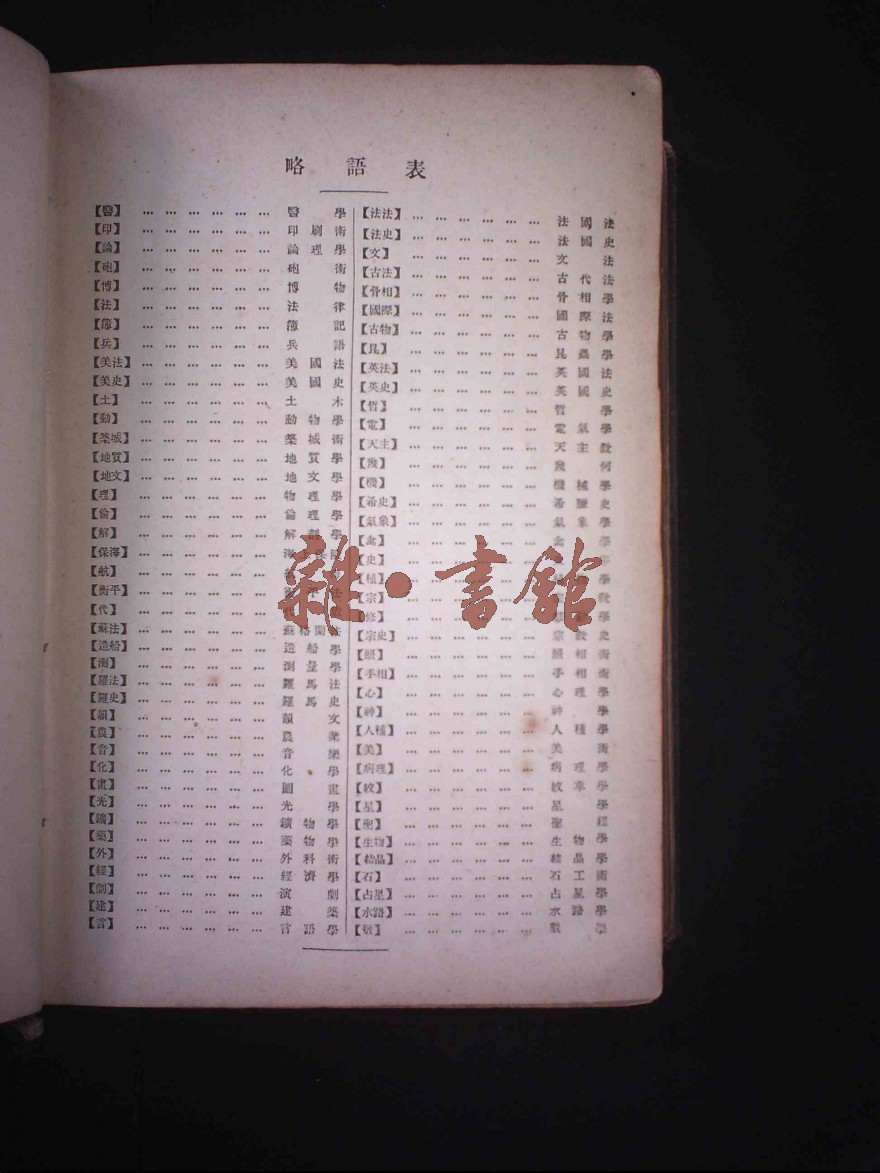 略語表
【醫】 … … … … … … 醫學
【印】 … … … … … … 印刷術
【論】 … … … … … … 論理學
【砲】 … … … … … … 砲術
【博】 … … … … … … 博物
【法】 … … … … … … 法律
【簿】 … … … … … … 簿記
【兵】 … … … … … … 兵語
【美法】 … … … … … … 美國法
【美史】 … … … … … … 美國史
【土】 … … … … … … 土木
【動】 … … … … … … 動物學
【築城】 … … … … … … 築城術
【地質】 … … … … … … 地質學
【地文】 … … … … … … 地文學
【理】 … … … … … … 物理學
【倫】 … … … … … … 倫理學
【解】 … … … … … … 解剖學
【保海】 … … … … … … 海
【航】 … … … … … …
【衡平】 … … … … … …
【代】 … … … … … …
【蘇法】 … … … … … … 蘇格蘭法
【造船】 … … … … … … 造船學
【測】 … … … … … … 測量學
【羅法】 … … … … … … 羅馬法
【羅史】 … … … … … … 羅馬史
【韻】 … … … … … … 韻文
【農】 … … … … … … 農業
【音】 … … … … … … 音樂
【化】 … … … … … … 化學
【畫】 … … … … … … 圖畫
【光】 … … … … … … 光學
【鑛】 … … … … … … 鑛物學
【藥】 … … … … … … 藥物學
【外】 … … … … … … 外科術
【經】 … … … … … … 經濟學
【劇】 … … … … … … 演劇
【建】 … … … … … … 建築
【言】 … … … … … … 言語學
【法法】 … … … … … … 法國法
【法史】 … … … … … … 法國史
【文】 … … … … … … 文法
【古法】 … … … … … … 古代法
【骨相】 … … … … … … 骨相學
【國際】 … … … … … … 國際法
【古物】 … … … … … … 古物學
【昆】 … … … … … … 昆蟲學
【英法】 … … … … … … 英國法
【英史】 … … … … … … 英國史
【哲】 … … … … … … 哲學
【電】 … … … … … … 電氣學
【天主】 … … … … … … 天主教
【幾】 … … … … … … 幾何
【機】 … … … … … … 機械學
【希史】 … … … … … … 希臘史
【氣象】 … … … … … … 氣象學
【禽】 … … … … … … 禽學
【史】 … … … … … …
【植】 … … … … … … 學
【宗】 … … … … … … 教
【修】 … … … … … … 學
【宗史】 … … … … … … 宗教史
【照】 … … … … … … 照相術
【手相】 … … … … … … 手相術
【心】 … … … … … … 心理學
【神】 … … … … … … 神學
【人種】 … … … … … … 人種學
【美】 … … … … … … 美術
【病理】 … … … … … … 病理學
【紋】 … … … … … … 紋章學
【星】 … … … … … … 星學
【聖】 … … … … … … 聖經
【生物】 … … … … … … 生物學
【結晶】 … … … … … … 結晶學
【石】 … … … … … … 石工術
【占星】 … … … … … … 占星學
【水路】 … … … … … … 水路學
【數】 … … … … … … 數學
雜·書館